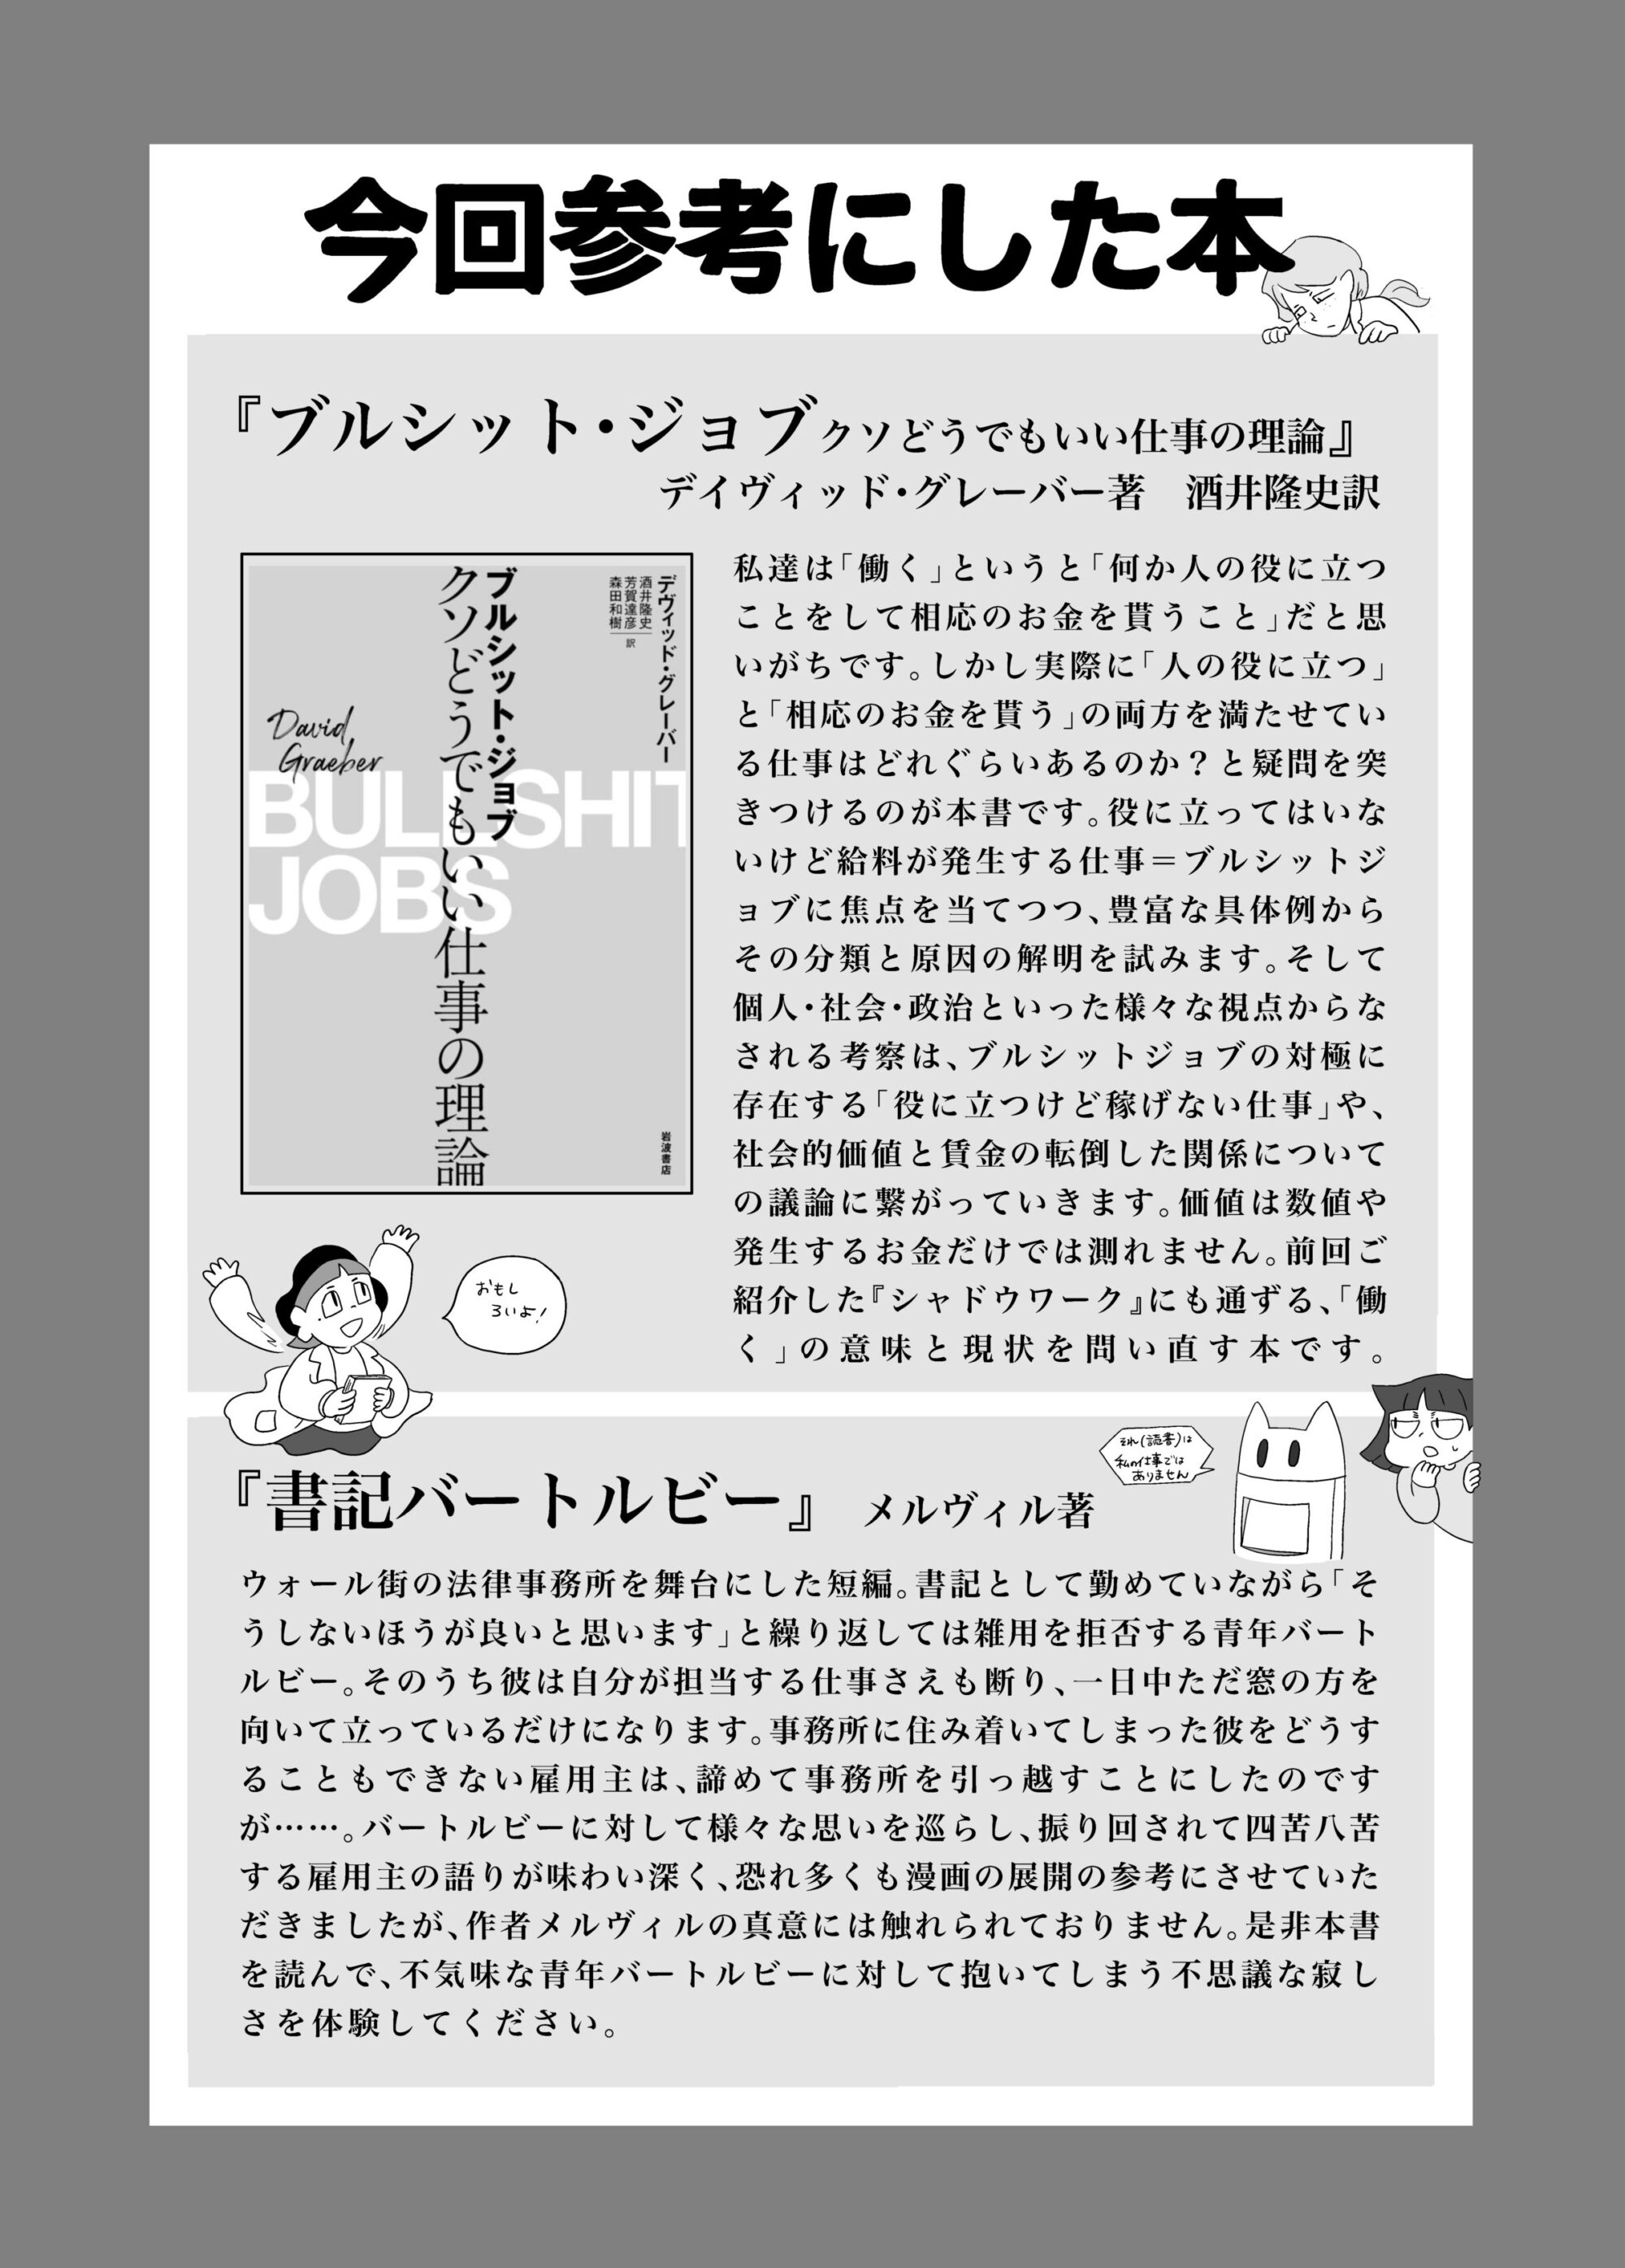 今回参考にした本
『ブルシット・ジョブクソどうでもいい仕事の理論』
デイヴィッド・グレーバー著　酒井隆史訳
デヴィッド・グレーバー
酒井隆史
芳賀達彦
森田和樹
訳
ブルシット・ジョブ
クソどうでもいい仕事の理論
David
Graeber
BULLSHIT
JOBS
岩波書店
私達は「働く」というと「何か人の役に立つ
ことをして相応のお金を貰うこと」だと思
いがちです。しかし実際に「人の役に立つ」
と「相応のお金を貰う」の両方を満たせてい
る仕事はどれぐらいあるのか？と疑問を突
きつけるのが本書です。役に立ってはいな
いけど給料が発生する仕事＝ブルシットジ
ョブに焦点を当てつつ、豊富な具体例から
その分類と原因の解明を試みます。そして
個人・社会・政治といった様々な視点からな
される考察は、ブルシットジョブの対極に
存在する「役に立つけど稼げない仕事」や、
社会的価値と賃金の転倒した関係について
の議論に繋がっていきます。価値は数値や
発生するお金だけでは測れません。前回ご
紹介した『シャドウワーク』にも通ずる、「働
く」の意味と現状を問い直す本です。
おもし
ろいよ！
それ(読書)は
私の仕事では
ありません
『書記バートルビー』　メルヴィル著
ウォール街の法律事務所を舞台にした短編。書記として勤めていながら「そ
うしないほうが良いと思います」と繰り返しては雑用を拒否する青年バート
ルビー。そのうち彼は自分が担当する仕事さえも断り、一日中ただ窓の方を
向いて立っているだけになります。事務所に住み着いてしまった彼をどうす
ることもできない雇用主は、諦めて事務所を引っ越すことにしたのです
が……。バートルビーに対して様々な思いを巡らし、振り回されて四苦八苦
する雇用主の語りが味わい深く、恐れ多くも漫画の展開の参考にさせていた
だきましたが、作者メルヴィルの真意には触れられておりません。是非本書
を読んで、不気味な青年バートルビーに対して抱いてしまう不思議な寂し
さを体験してください。